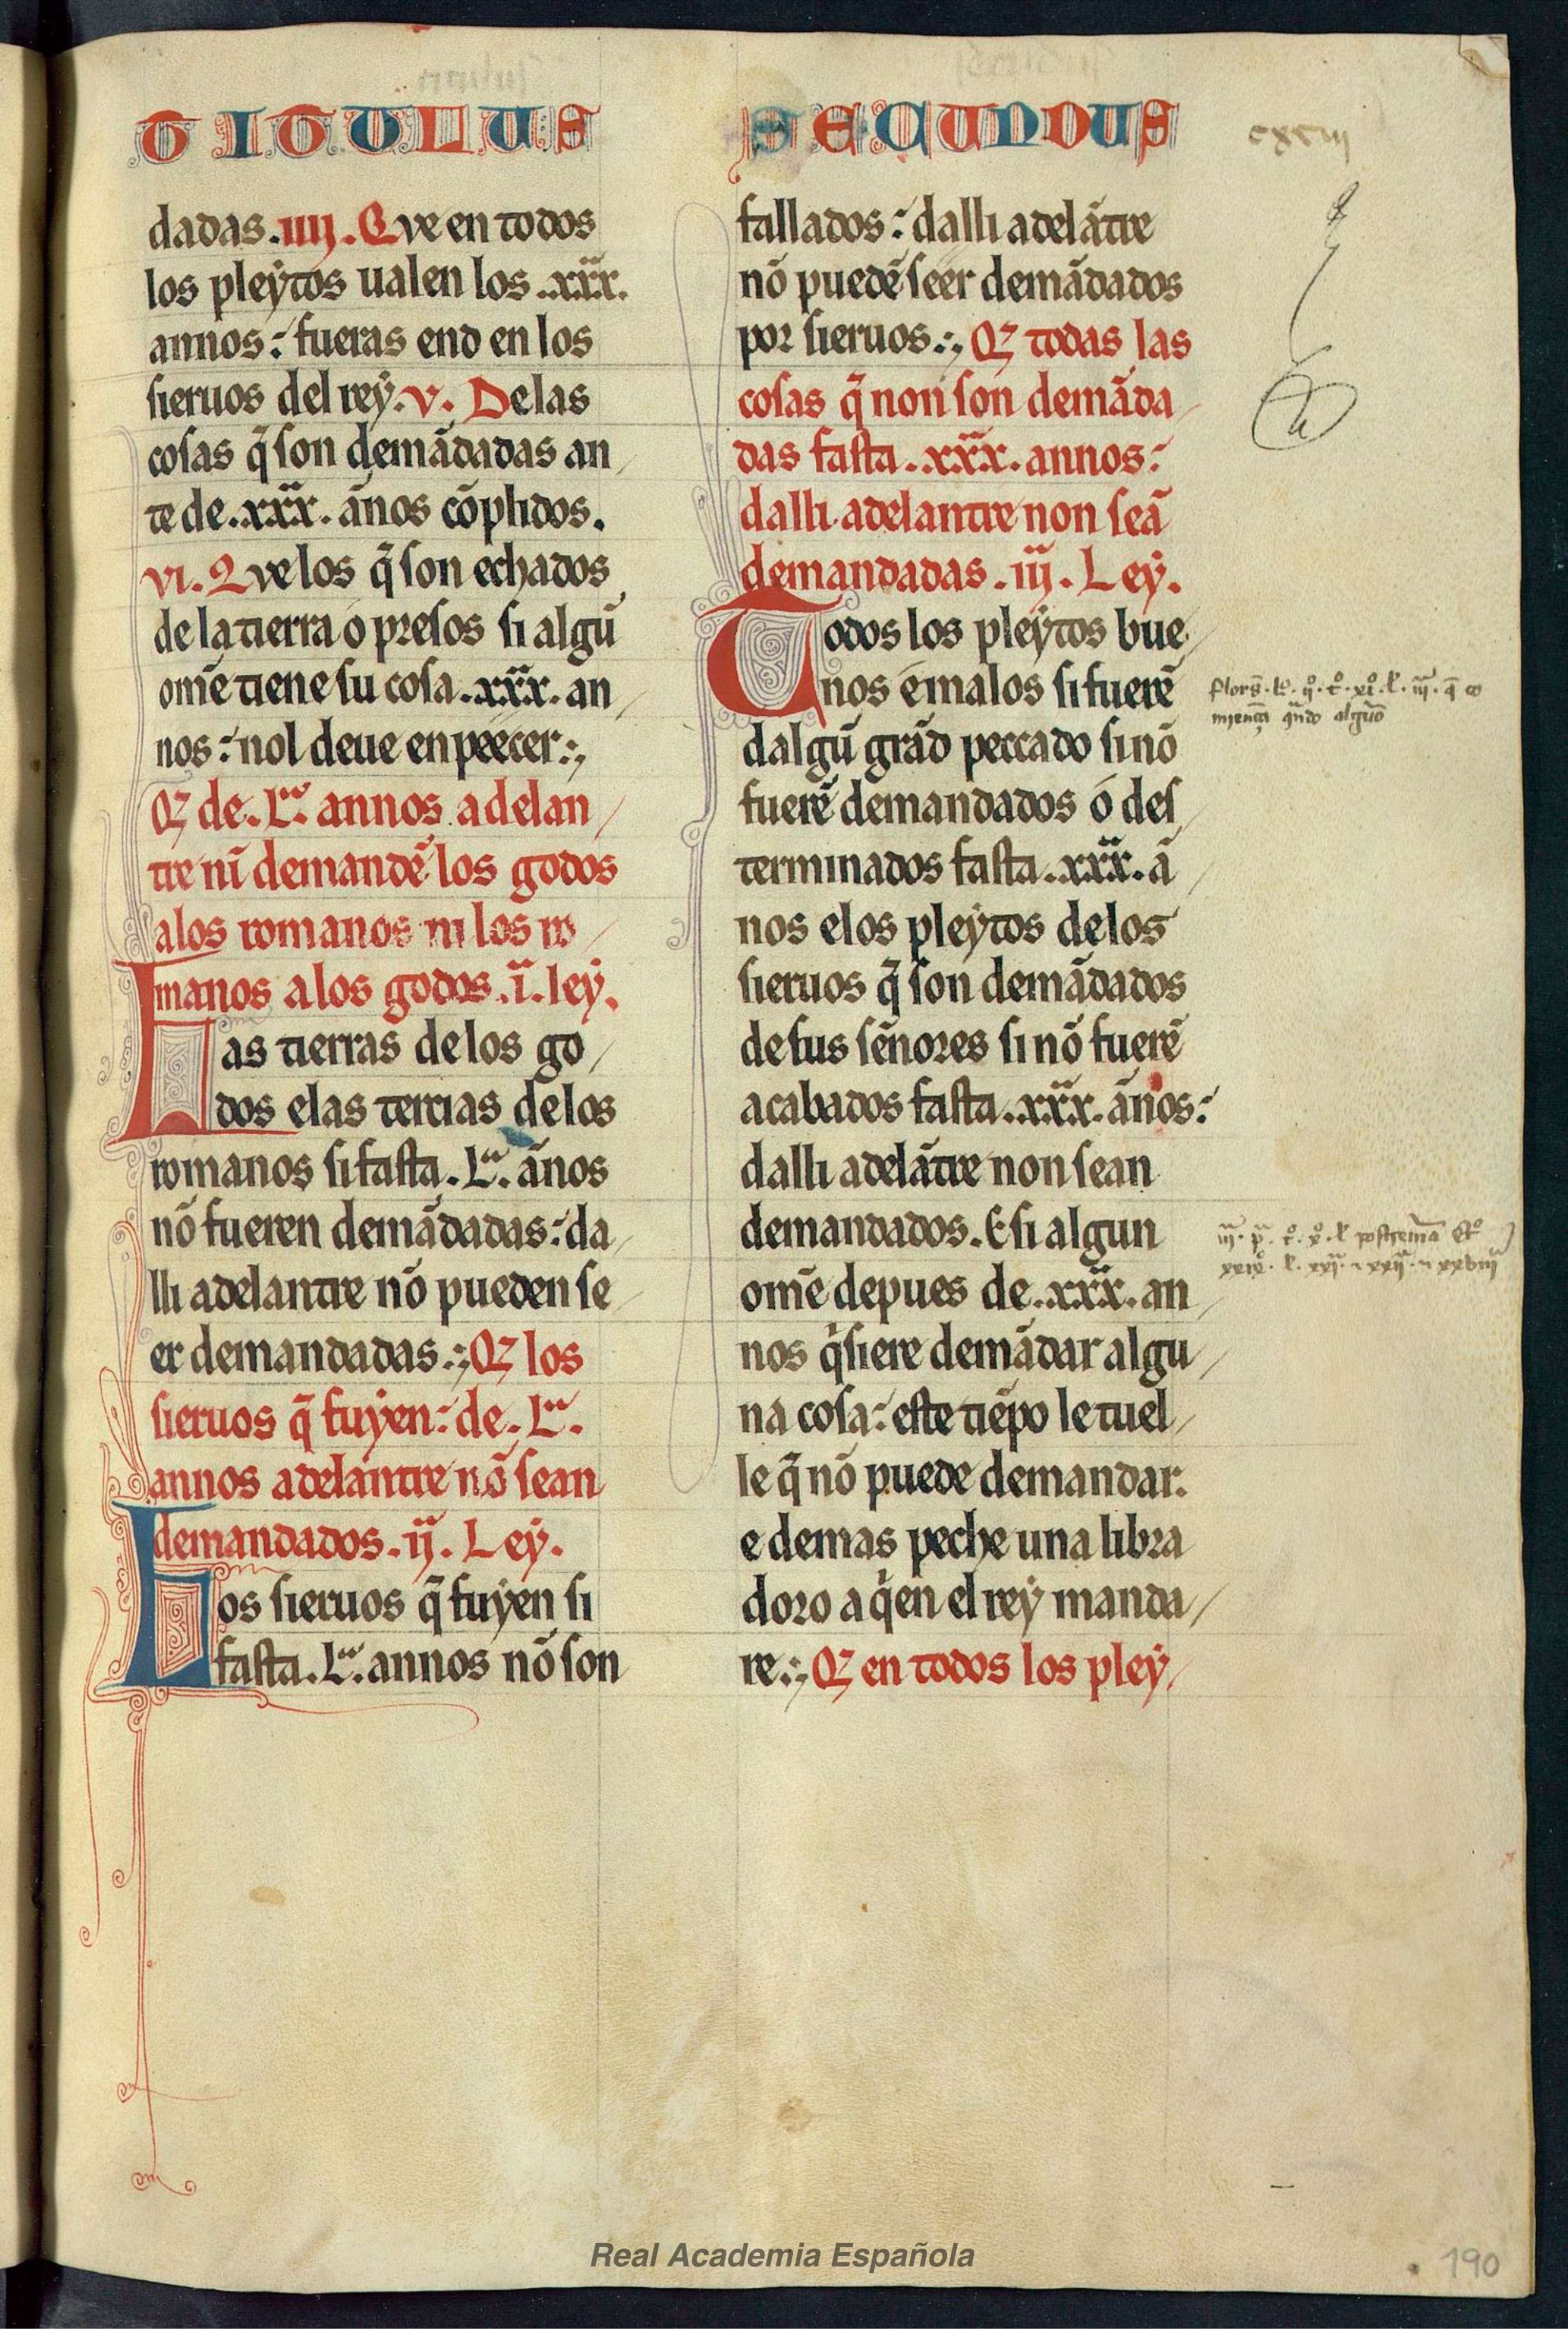 TITULUS SECUNDUS
cxcııȷ
dadas .ıııȷ. Que en todos
los pleẏtos ualen los .xxx.
annos: fueras end en los
sieruos del reẏ. v. Delas
cosas q̃ son demãdadas an
te de .xxx. ãnos cõplidos.
vı. Que los q̃ son echados
de la tierra o presos si algũ
omẽ tiene su cosa .xxx. an
nos: nol deue enpeecer.
Qȝ de .L. annos adelan
tre nĩ demandẽ los godos
alos romanos ni los ro
manos alos godos .ı. leẏ.
Las tierras delos go
dos elas tercias delos
romanos si fasta .L. ãnos
nõ fueren demãdadas: da
lli adelantre nõ pueden se
er demandadas. Qȝ los
sieruos q̃ fuẏen: de .L.
annos adelantre nõ sean
demandados .ıȷ. Leẏ.
Los sieruos q̃ fuẏen si
fasta .L. annos nõ son
fallados: dalli adelãtre
nõ puedẽ seer demãdados
por sieruos. Qȝ todas las
cosas q̃ non son demãda
das fasta .xxx. annos:
dalli adelantre non seã
demandadas .ııȷ. Leẏ.
Todos los pleẏtos bue
nos e malos si fuerẽ
dalgũ grãd peccado si nõ
fuerẽ demandados o des
terminados fasta .xxx. ã
nos elos pleẏtos delos
sieruos q̃ son demãdados
de sus sẽnores si nõ fuerẽ
acabados fasta .xxx. ãnos:
dalli adelãtre non sean
demandados. E si algun
omẽ depues de .xxx. an
nos q̇siere demãdar algu
na cosa: este tiẽpo le tuel
le q̃ nõ puede demandar.
e demas peche una libra
doro a q̇en el reẏ manda
re. Qȝ en todos los pleẏ
Real Academia Española
190